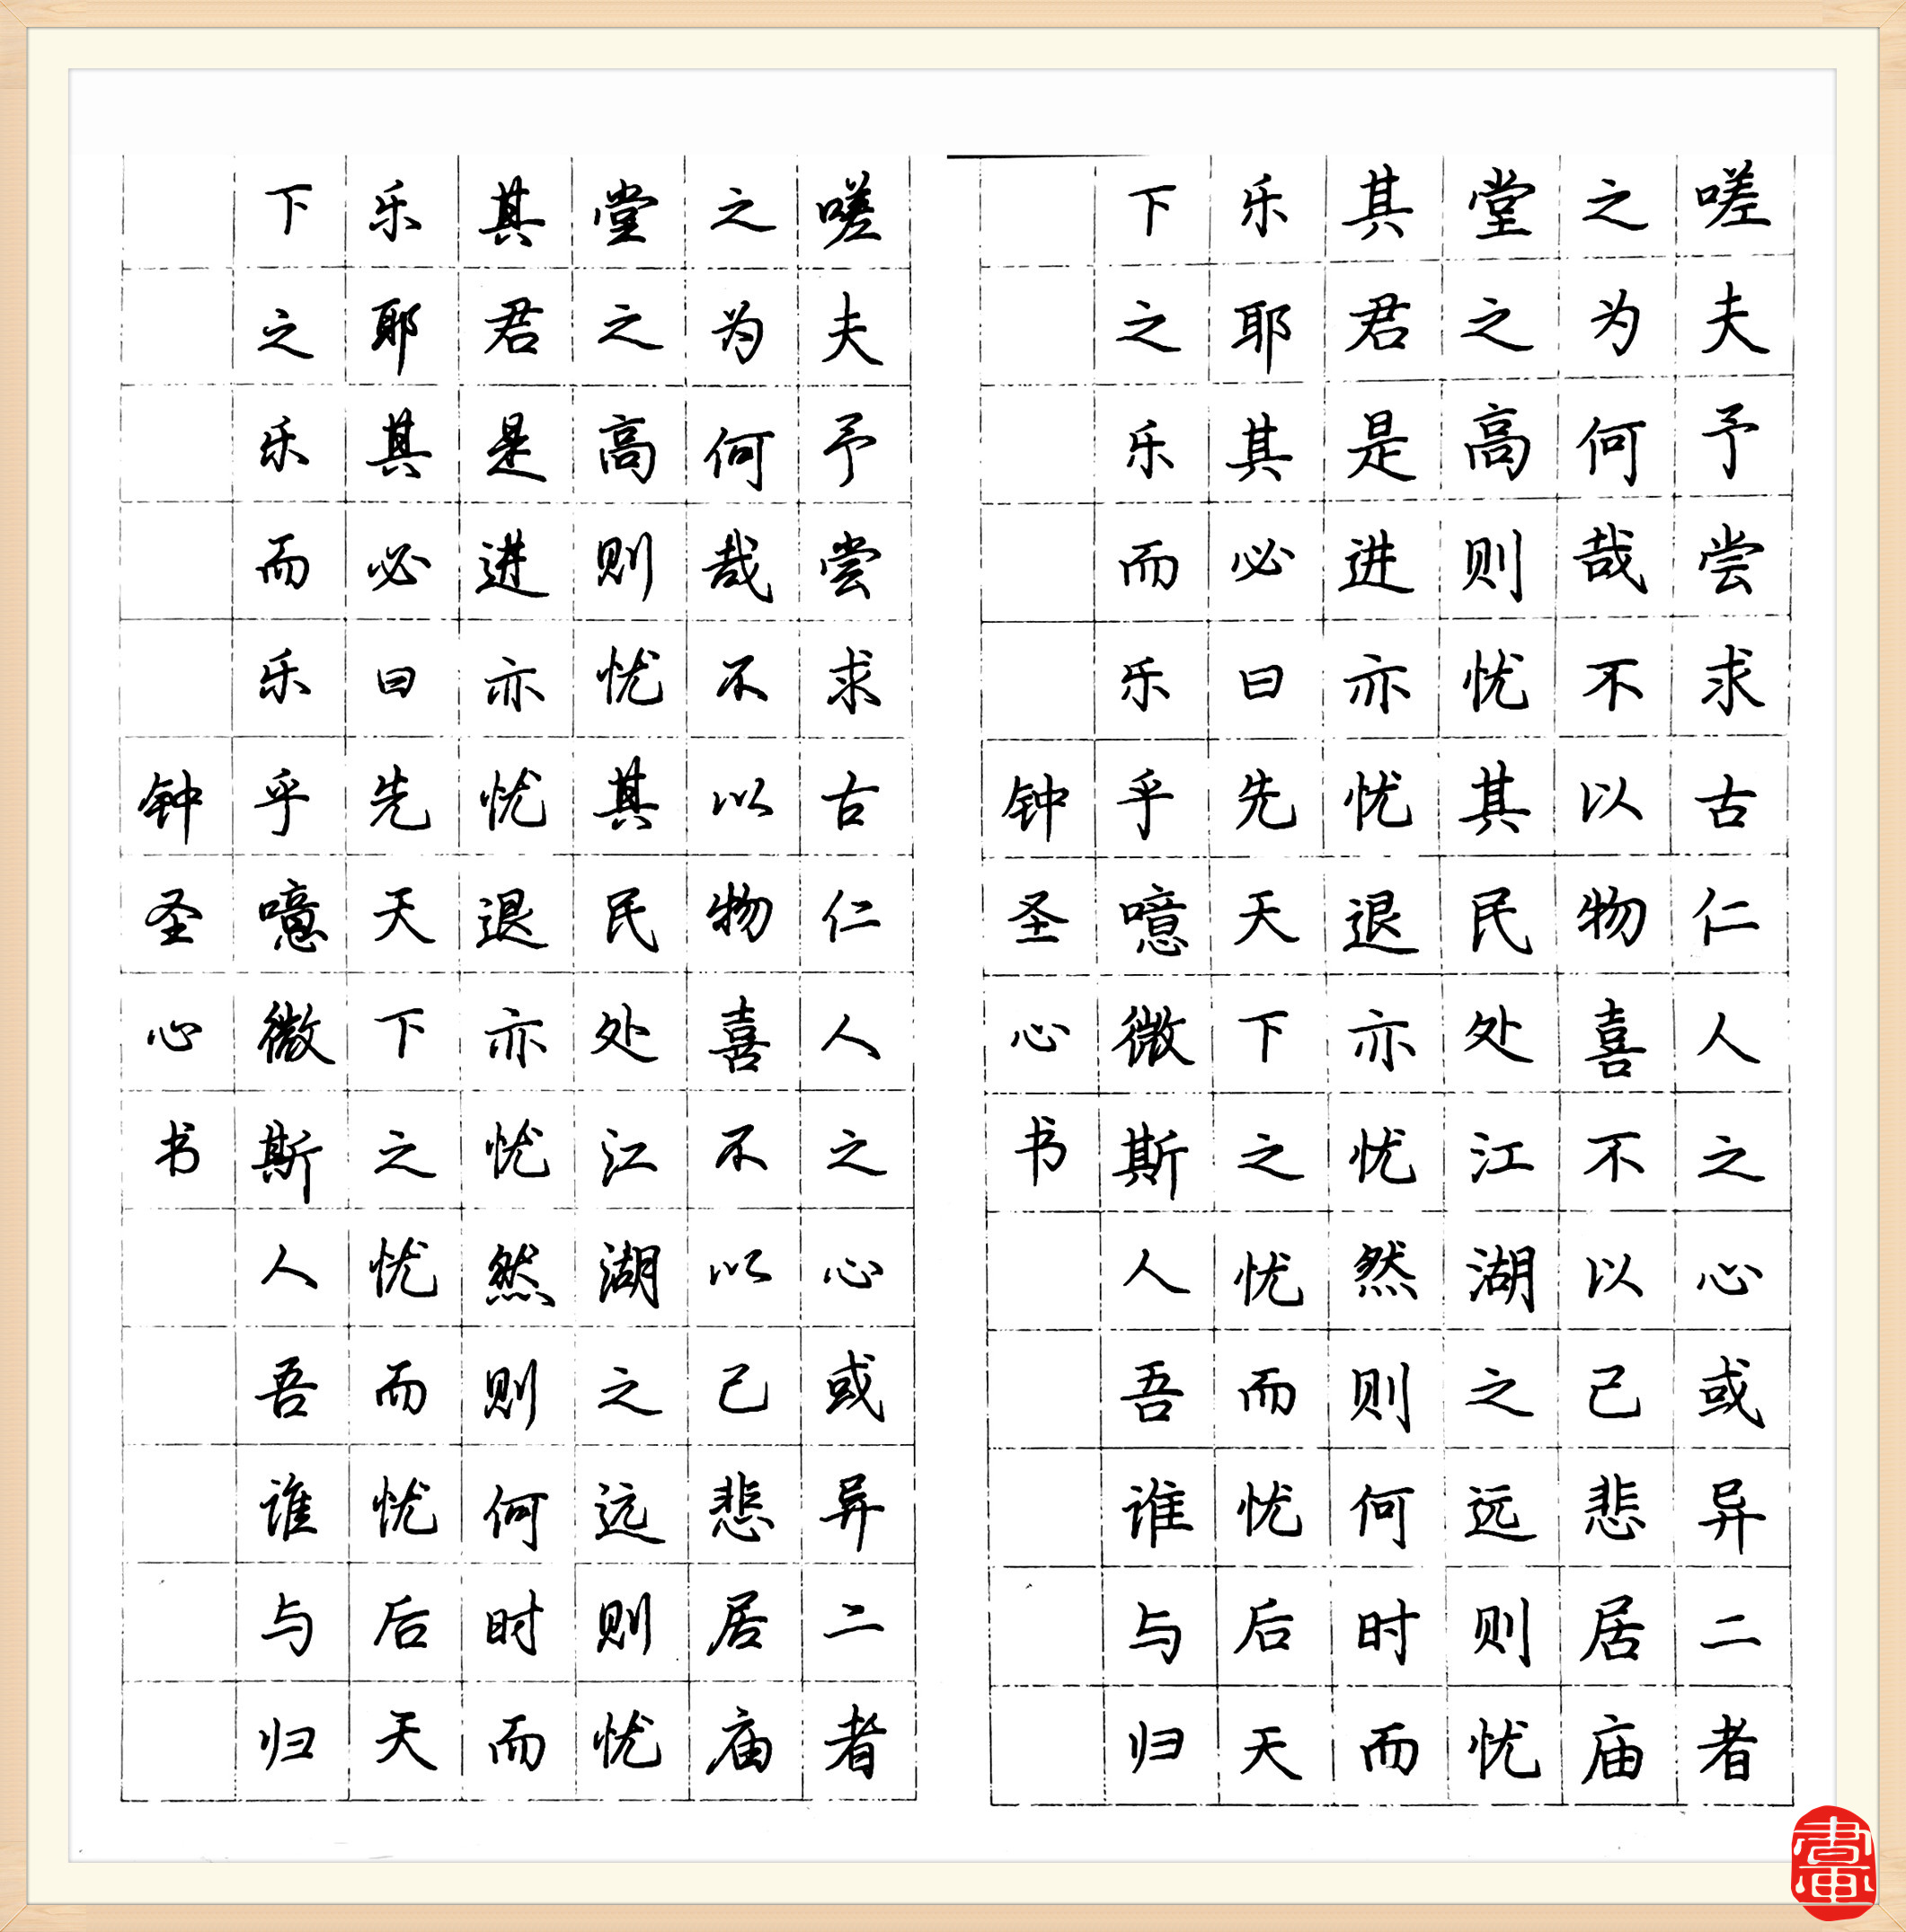 嗟夫予尝求古仁人之心或异二者
之为何哉不以物喜不以己悲居庙
堂之高则忧其民处江湖之远则忧
其君是进亦忧退亦忧然则何时而
乐耶其必曰先天下之忧而忧后天
下之乐而乐乎噫微斯人吾谁与归
钟圣心书
嗟夫予尝求古仁人之心或异二者
之为何哉不以物喜不以己悲居庙
堂之高则忧其民处江湖之远则忧
其君是进亦忧退亦忧然则何时而
乐耶其必曰先天下之忧而忧后天
下之乐而乐乎噫微斯人吾谁与归
钟圣心书